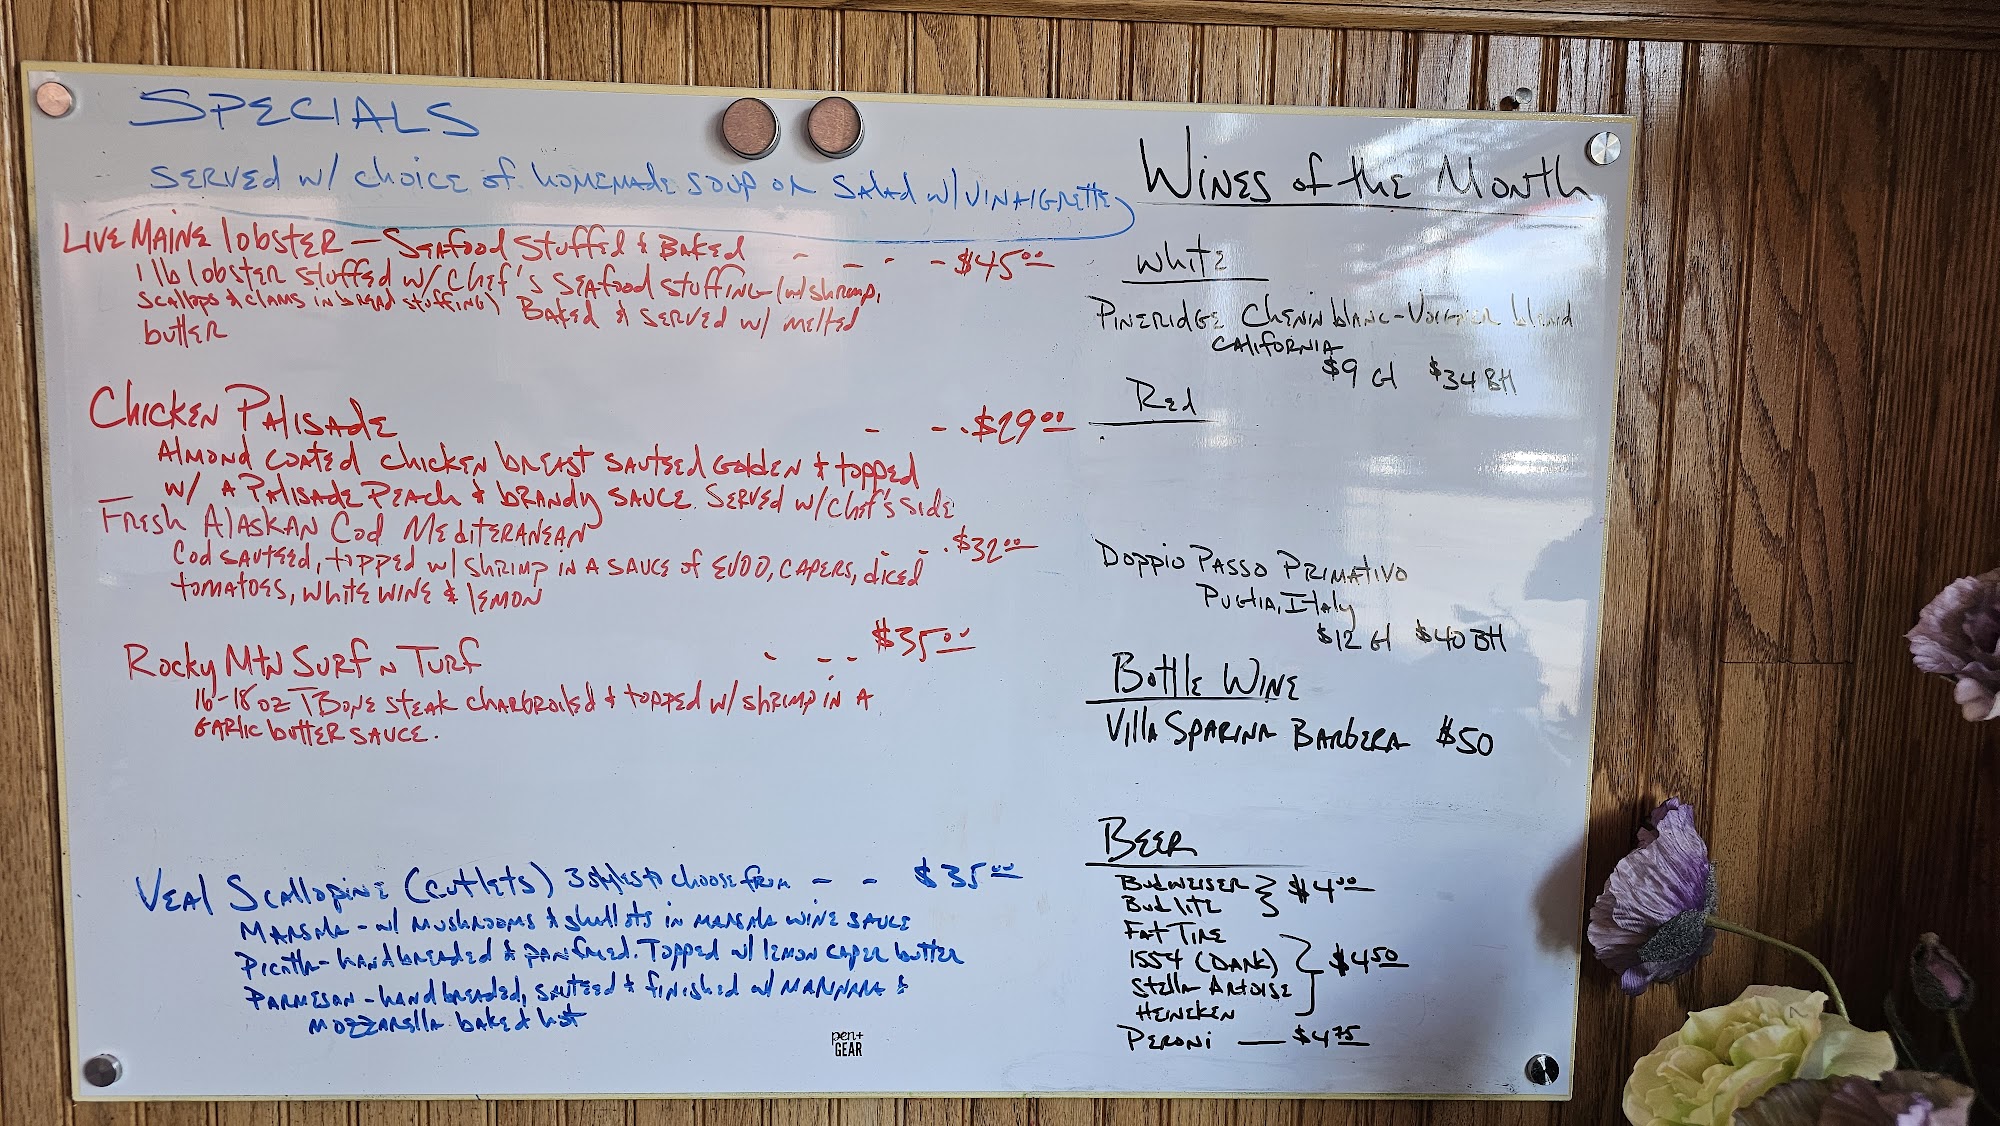 SPECIALS
SERVED w/ choice of homemade soup or salad w/ VINAIGRETTE
LIVE MAINE lobster - Seafood Stuffed & Baked - - - - $45.00
1 lb lobster stuffed w/ Chef's Seafood stuffing (w/shrimp,
scallops & clams in bread stuffing) Baked & served w/ melted
butter
Chicken Palisade - - - . $29.00
Almond coated chicken breast sauteed golden & topped
w/ a Palisade Peach & brandy sauce. Served w/ chef's side
Fresh Alaskan Cod Mediteranean - - . $32.00
Cod sauteed, topped w/ shrimp in a sauce of EVOO, capers, diced
tomatoes, white wine & lemon
Rocky Mtn Surf n Turf - - - $35.00
16-18oz TBone steak charbroiled & topped w/ shrimp in a
garlic butter sauce.
Veal Scallopine (cutlets) 3 styles to choose from - - $35.00
Marsala - w/ mushrooms & shallots in marsala wine sauce
Picatta - handbreaded & panfried. Topped w/ lemon caper butter
Parmesan - hand breaded, sauteed & finished w/ marinara &
mozzarella baked hot
pen+
GEAR
Wines of the Month
White
Pineridge Chenin blanc - Voignier blend
California
$9 Gl $34 Btl
Red
Doppio Passo Primativo
Puglia, Italy
$12 Gl $40 Btl
Bottle Wine
Villa Sparina Barbera $50
Beer
Budweiser } $4.00
Bud lite
Fat Tire
1554 (Dark) } $4.50
Stella Artoise
Heineken
Peroni — $4.75